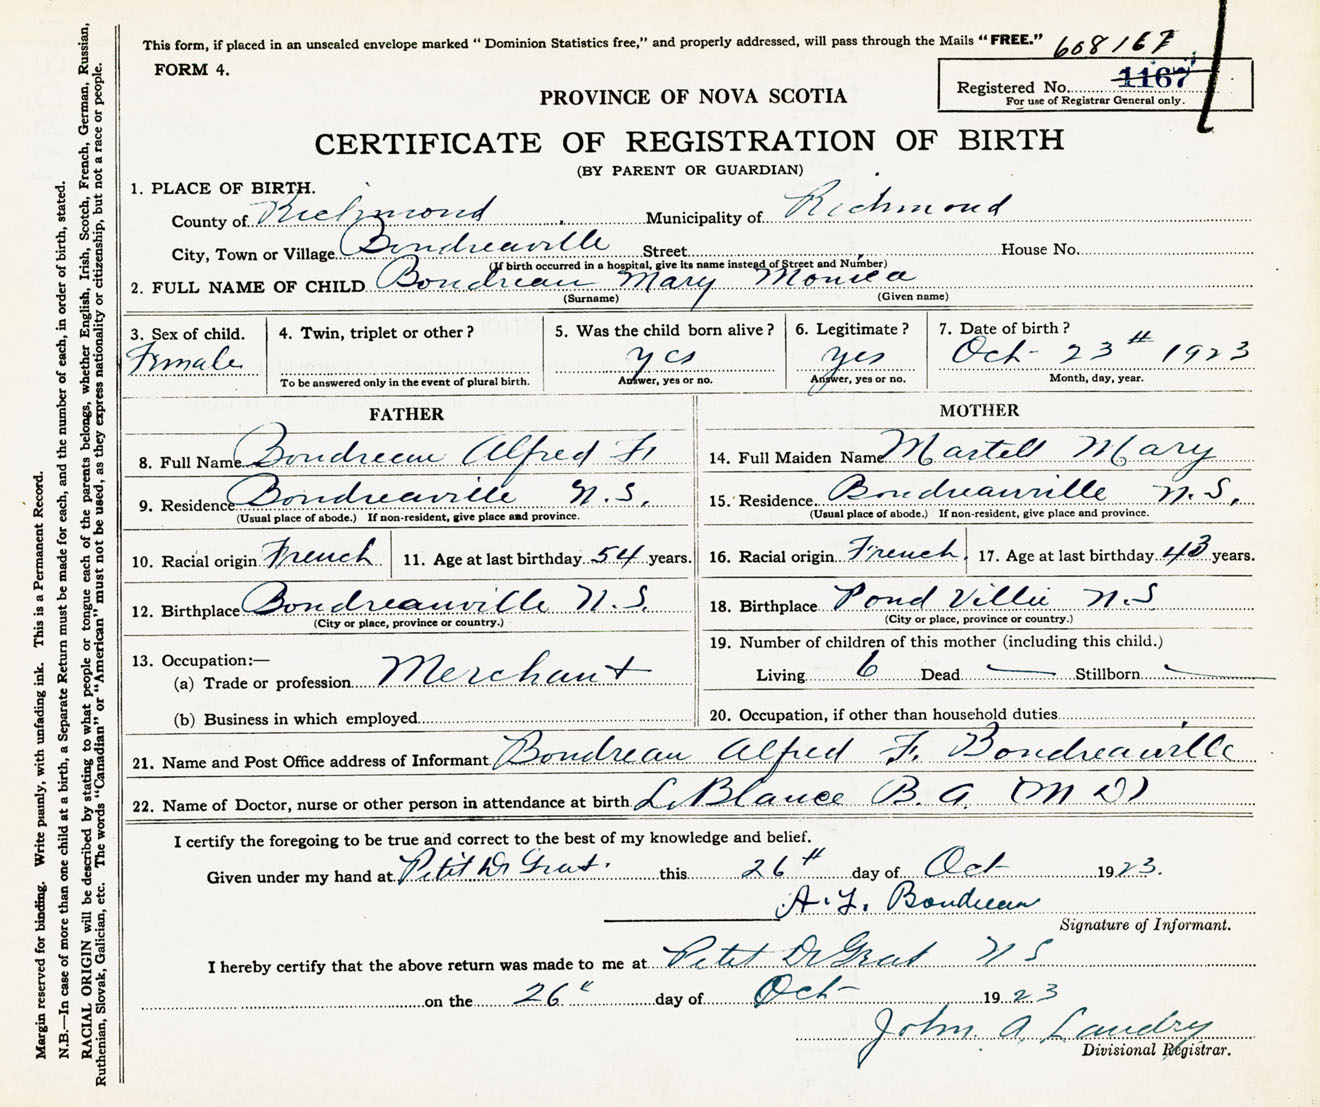 This form, if placed in an unsealed envelope marked " Dominion Statistics free," and properly addressed, will pass through the Mails "FREE." 608167
FORM 4.
Registered No. 1167
For use of Registrar General only.
PROVINCE OF NOVA SCOTIA
CERTIFICATE OF REGISTRATION OF BIRTH
(BY PARENT OR GUARDIAN)
1. PLACE OF BIRTH.
County of Richmond Municipality of Richmond
City, Town or Village Boudreauville Street House No.
(If birth occurred in a hospital, give its name instead of Street and Number)
2. FULL NAME OF CHILD Boudreau Mary Monica
(Surname) (Given name)
3. Sex of child. 4. Twin, triplet or other? 5. Was the child born alive? 6. Legitimate? 7. Date of birth?
Female yes yes Oct 23rd 1923
To be answered only in the event of plural birth. Answer, yes or no. Answer, yes or no. Month, day, year.
FATHER MOTHER
8. Full Name Boudreau Alfred F. 14. Full Maiden Name Martell Mary
9. Residence Boudreauville N.S. 15. Residence Boudreauville N.S.
(Usual place of abode.) If non-resident, give place and province. (Usual place of abode.) If non-resident, give place and province.
10. Racial origin French 11. Age at last birthday 54 years. 16. Racial origin French 17. Age at last birthday 43 years.
12. Birthplace Boudreauville N.S. 18. Birthplace Pond Ville N.S
(City or place, province or country.) (City or place, province or country.)
13. Occupation:— 19. Number of children of this mother (including this child.)
(a) Trade or profession Merchant Living 6 Dead — Stillborn —
(b) Business in which employed 20. Occupation, if other than household duties
21. Name and Post Office address of Informant Boudreau Alfred F. Boudreauville
22. Name of Doctor, nurse or other person in attendance at birth LeBlance B. A. (M D)
I certify the foregoing to be true and correct to the best of my knowledge and belief.
Given under my hand at Petit De Grat this 26th day of Oct 1923.
A. F. Boudreau
Signature of Informant.
I hereby certify that the above return was made to me at Petit De Grat N S
on the 26" day of Oct 1923
John. A. Landry
Divisional Registrar.
Margin reserved for binding. Write plainly, with unfading ink. This is a Permanent Record.
N.B.—In case of more than one child at a birth, a Separate Return must be made for each, and the number of each, in order of birth, stated.
RACIAL ORIGIN will be described by stating to what people or tongue each of the parents belongs, whether English, Irish, Scotch, French, German, Russian,
Ruthenian, Slovak, Galician, etc. The words "Canadian" or "American" must not be used, as they express nationality or citizenship, but not a race or people.